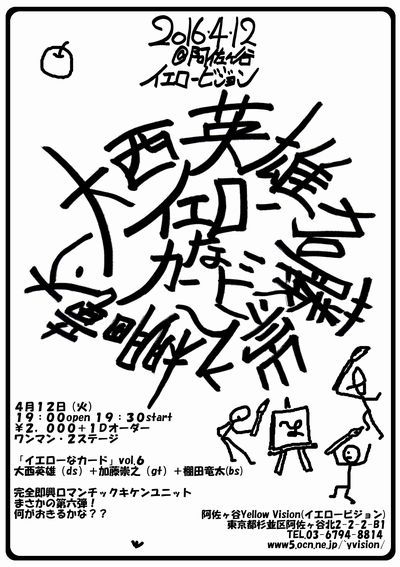 2016.4.12
@阿佐ヶ谷
イエロービジョン
大西英雄
加藤崇之
棚田竜太
イエロー
な
カード
4月12日(火)
19:00open 19:30start
¥2,000+1Dオーダー
ワンマン・2ステージ
「イエローなカード」vol.6
大西英雄(ds)+加藤崇之(gt)+棚田竜太(bs)
完全即興ロマンチックキケンユニット
まさかの第六弾!
何がおきるかな??
阿佐ヶ谷Yellow Vision(イエロービジョン)
東京都杉並区阿佐ヶ谷北2-2-2-B1
TEL03-6794-8814
www5.ocn.ne.jp/~yvision/